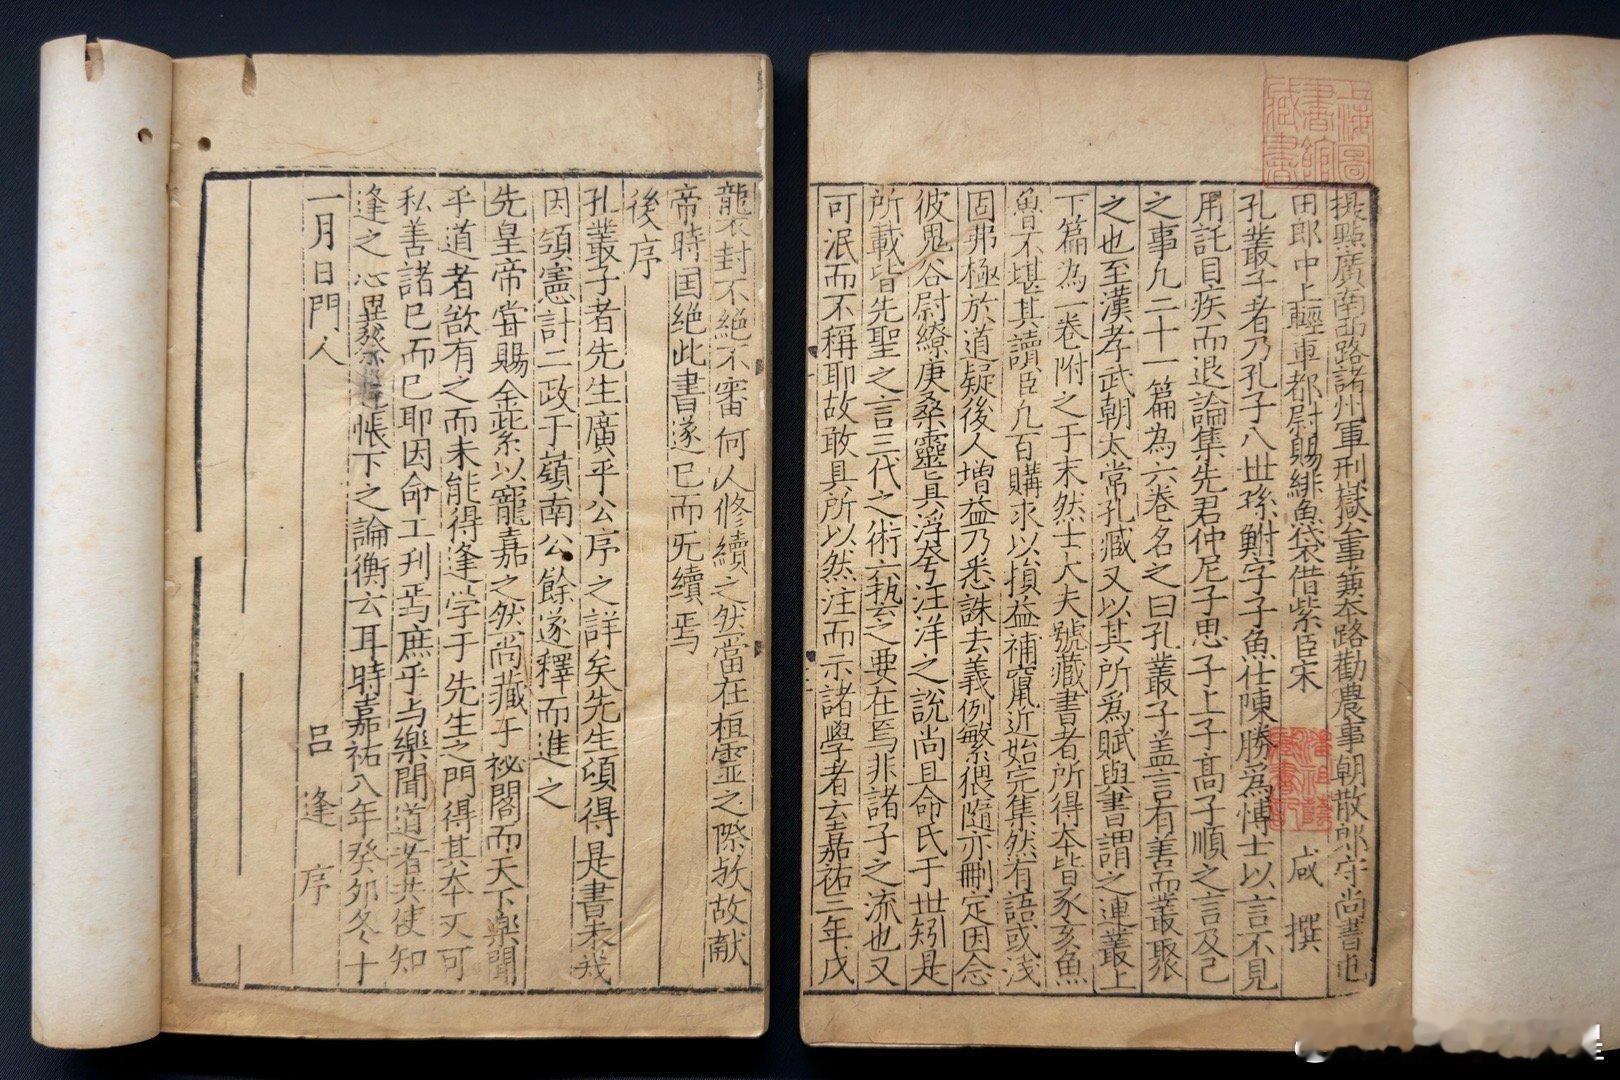 上海圖書館藏書
提點廣南西路諸州軍刑獄公事兼本路勸農事朝散郎守尚書屯
田郎中上輕車都尉賜緋魚袋借紫臣宋 咸 撰
孔叢子者乃孔子八世孫鮒字子魚仕陳勝為博士以言不見
用託目疾而退論集先君仲尼子思子上子高子順之言及己
之事凡二十一篇為六卷名之曰孔叢子盖言有善而叢聚
之也至漢孝武朝太常孔臧又以其所為賦與書謂之連叢上
下篇為一卷附之于末然士大夫號藏書者所得本皆豕亥魚
魯不堪其讀臣凡百購求以損益補竄近始完集然有語或淺
固弗極於道疑後人增益乃悉誅去義例繁猥隨亦刪定因念
彼鬼谷尉繚庚桑靈真浮夸汪洋之說尚且命氏于世矧是
所載皆先聖之言三代之術六藝之要在焉非諸子之流也又
可泯而不稱耶故敢具所以然注而示諸學者云嘉祐三年戊
龍衣封不絕不審何人修續之然當在桓靈之際故故献
帝時国絶此書遂已而旡續焉
後序
孔叢子者先生廣平公序之詳矣先生頃得是書未幾
因領憲計二政于嶺南公餘遂釋而進之
先皇帝甞賜金紫以寵嘉之然尚藏于祕閣而天下樂聞
乎道者欲有之而未能得逢学于先生之門得其本又可
私善諸己而已耶因命工刊焉庶乎与樂聞道者共使知
逢之心異蔡邕帳下之論衡云耳時嘉祐八年癸夘冬十
一月日門人 吕 逢 序